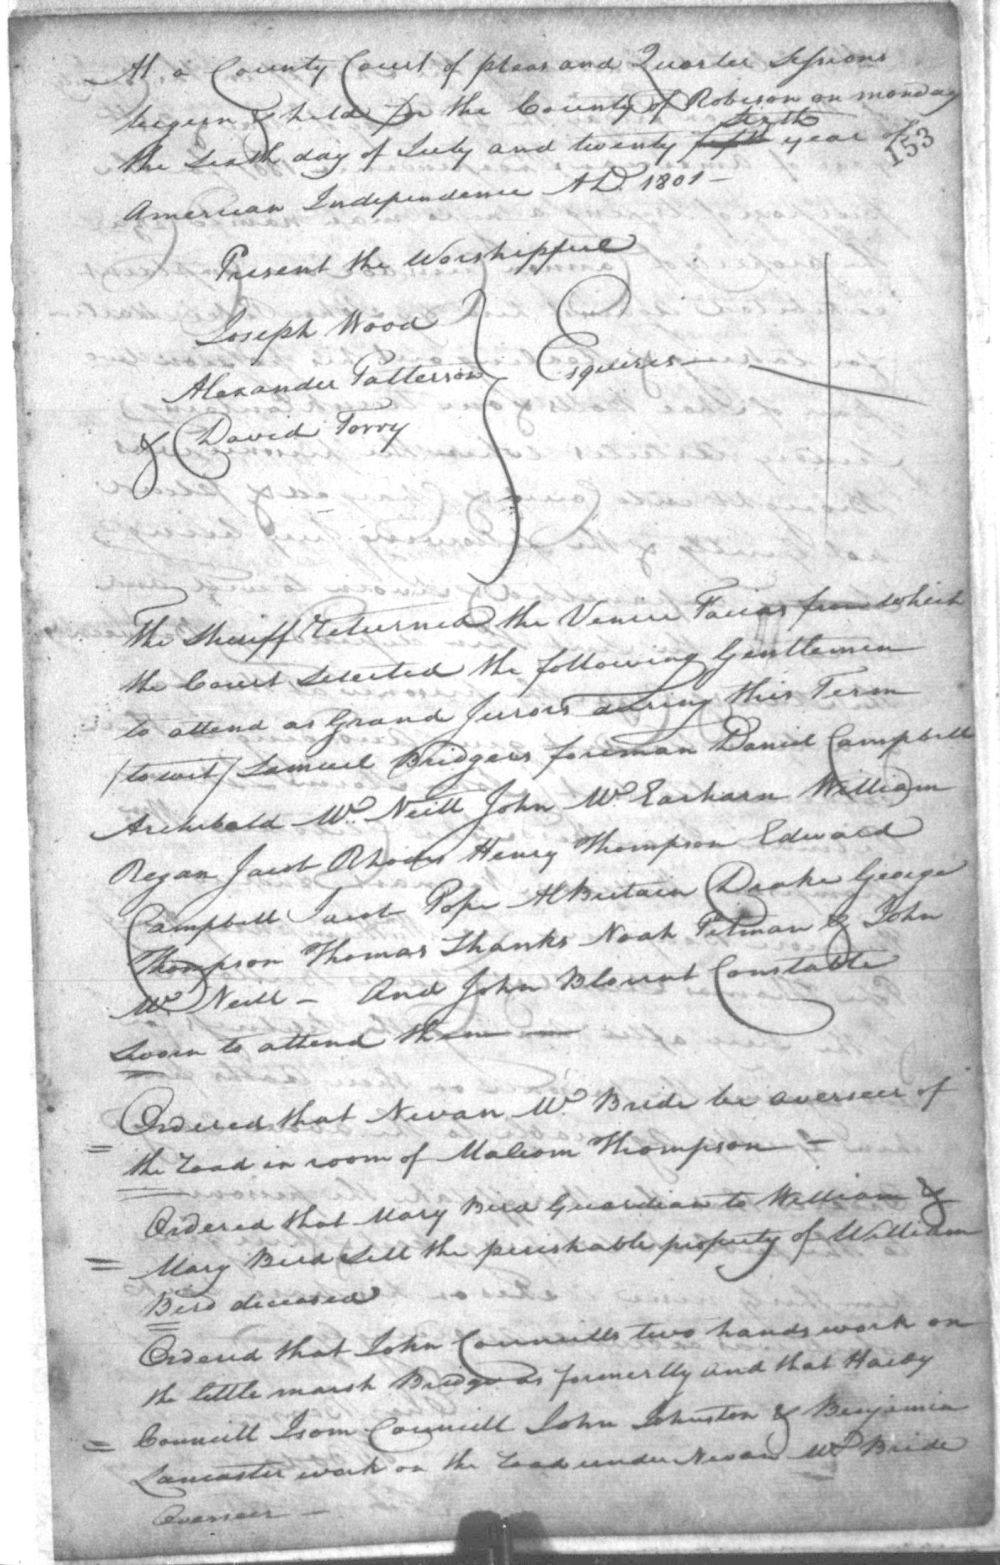 At a County Court of pleas and Quarter Sessions
begun & held for the County of Robeson on monday
the Sixth day of July and twenty fifth Sixth year of
153
American Independence AD. 1801 —
Present the Worshipfull
Joseph Wood
Alexander Patterson Esquires
& David Torry
The Sheriff Returned the Venire Facias from which
the Court Selected the following Gentlemen
to attend as Grand Jurors during this Term
(to wit) Samuel Bridgers foreman Daniel Campbell
Archibald Mc. Neill John Mc Eacharn William
Regan Jacob Rhodes Henry Thompson Edward
Campbell Jacob Pope Drake George
Thompson Thomas Shanks Noah Pitman & John
Mc Neill — And John Blount Constable
Sworn to attend them —
Ordered that Nevan Mc Bride be overseer of
the road in room of Malcom Thompson —
Ordered that Mary Bird Guardian to William &
Mary Bird sell the perishable property of William
Bird deceased
Ordered that John Councills two hands work on
the little marsh Bridge as formerlly and that Hardy
Councill Isom Councill John Johnston & Benjamin
Lancaster work on the road under Nevan Mc Bride
Overseer —